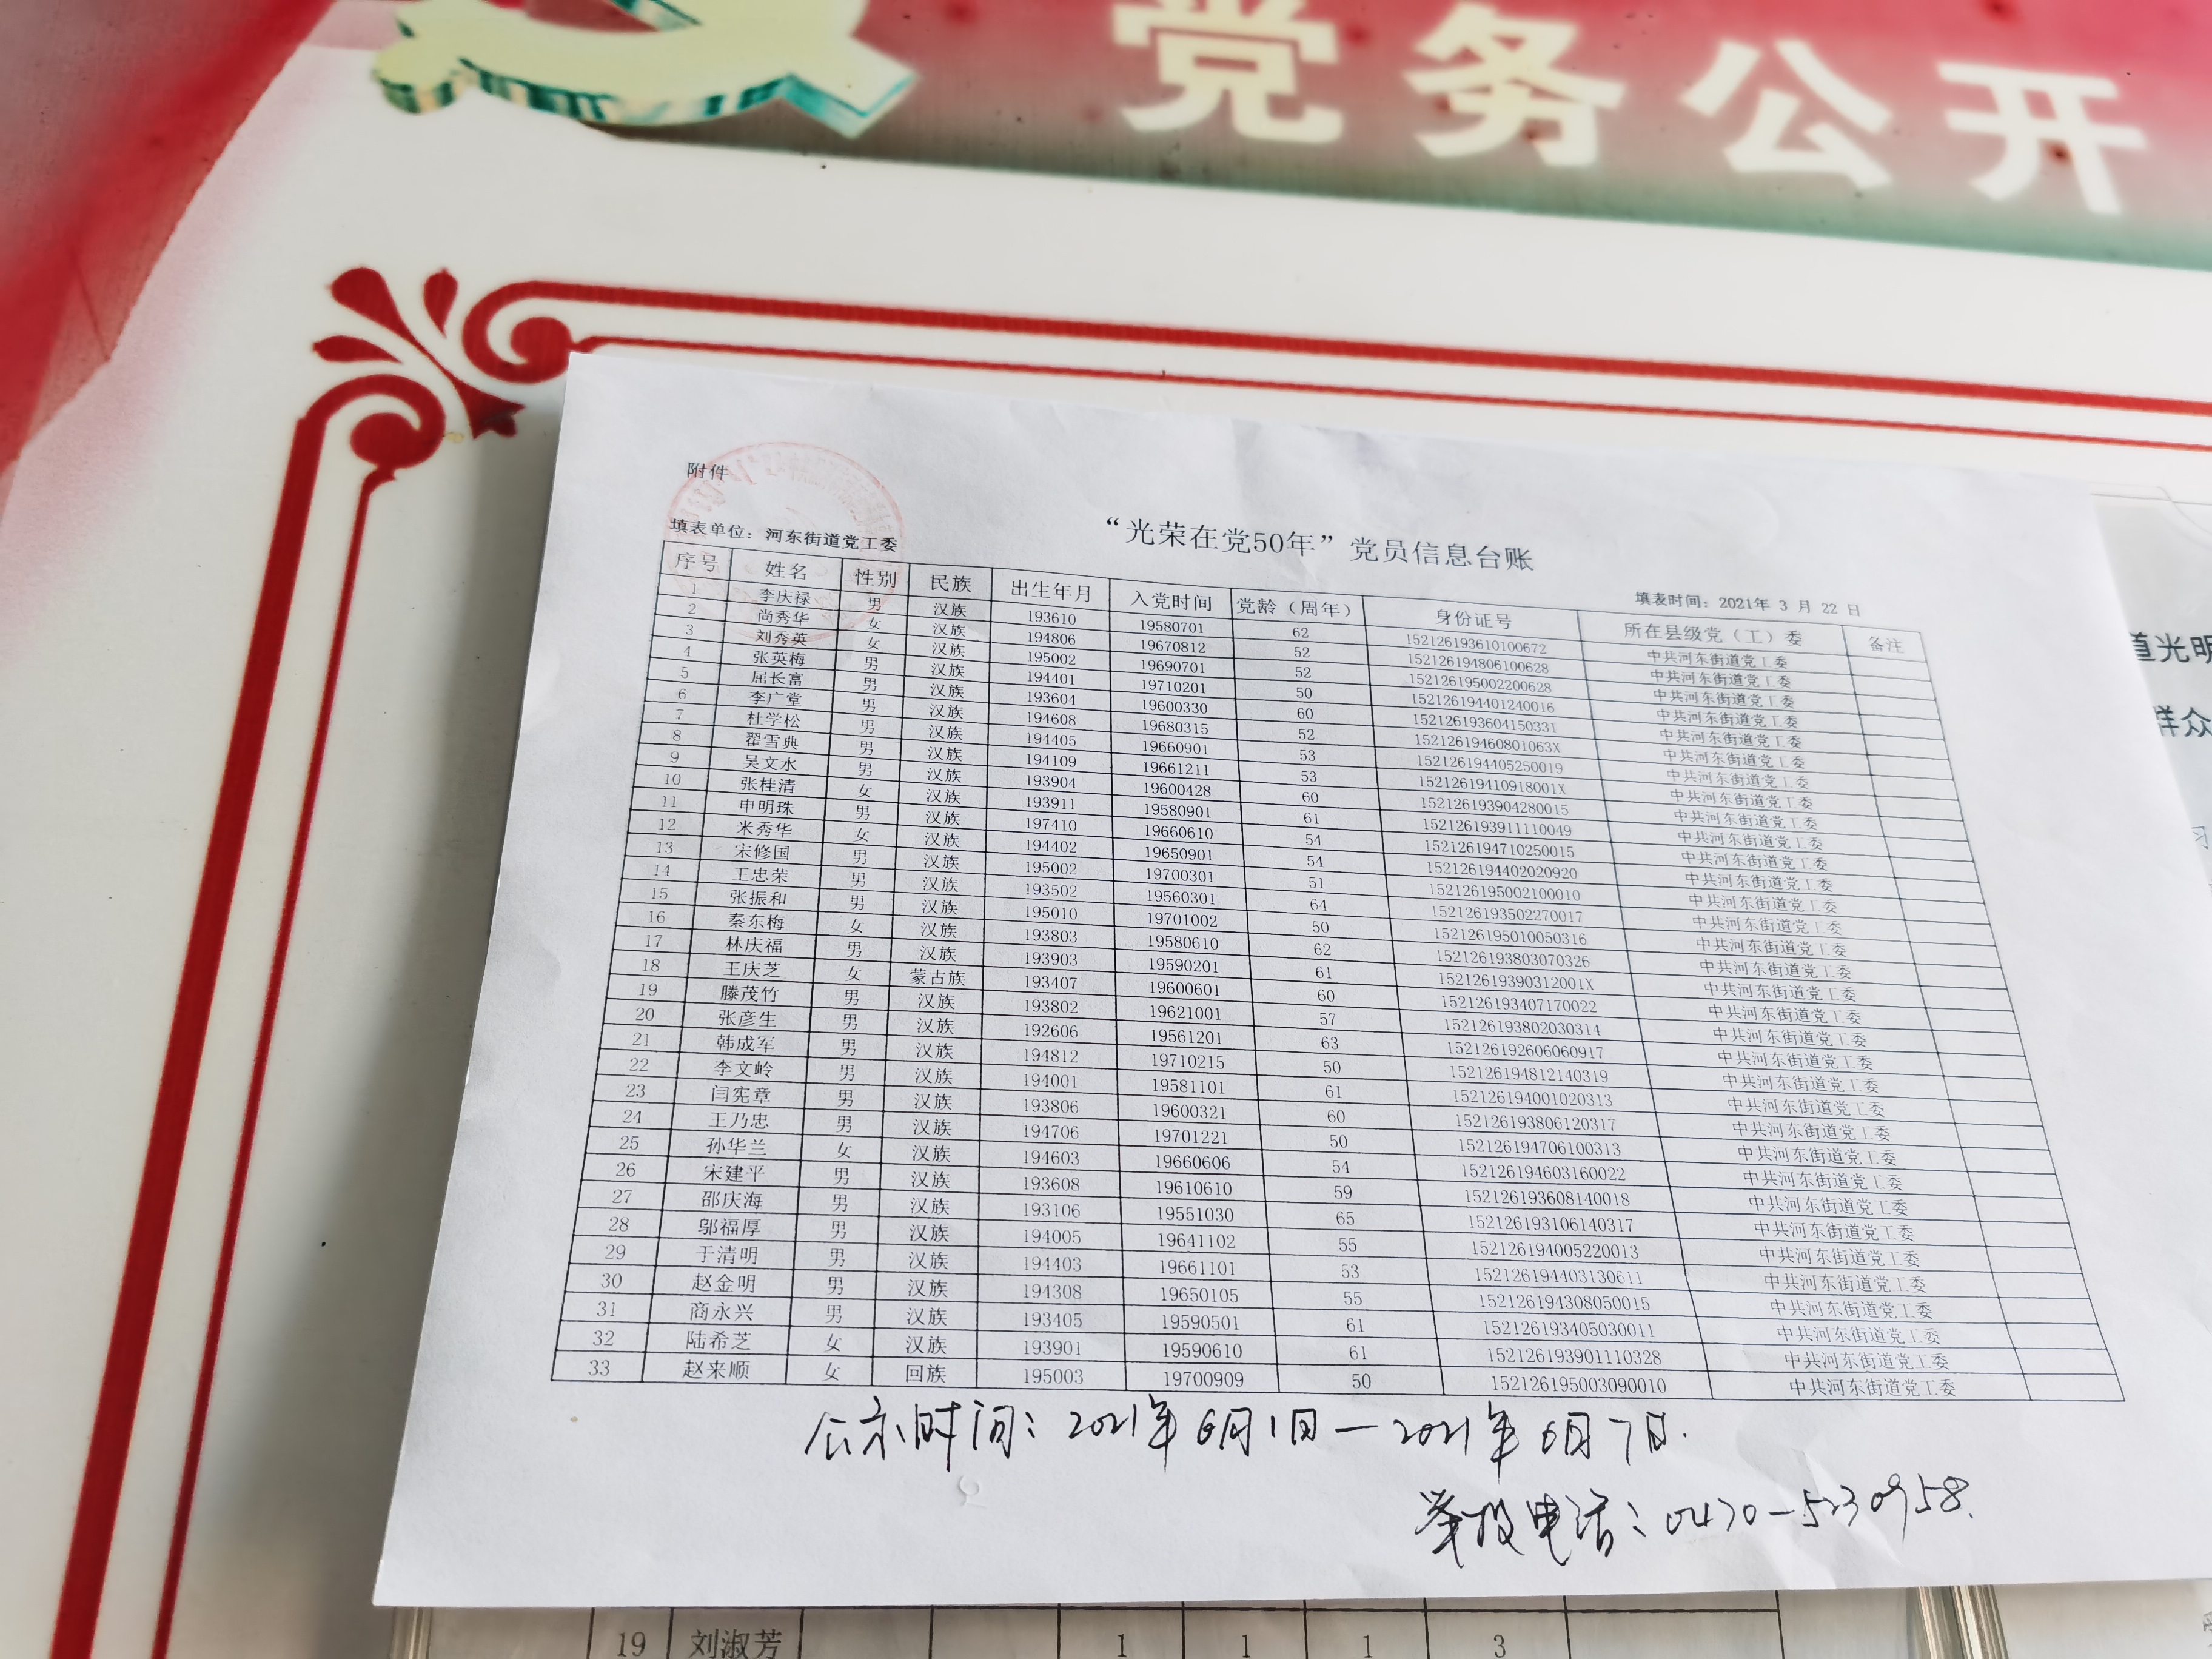 党务公开
附件
“光荣在党50年”党员信息台账
填表单位：河东街道党工委
填表时间：2021年 3 月 22 日
序号 姓名 性别 民族 出生年月 入党时间 党龄（周年） 身份证号 所在县级党（工）委 备注
1 李庆禄 男 汉族 193610 19580701 62 152126193610100672 中共河东街道党工委
2 尚秀华 女 汉族 194806 19670812 52 152126194806100628 中共河东街道党工委
3 刘秀英 女 汉族 195002 19690701 52 152126195002200628 中共河东街道党工委
4 张英梅 男 汉族 194401 19710201 50 152126194401240016 中共河东街道党工委
5 屈长富 男 汉族 193604 19600330 60 152126193604150331 中共河东街道党工委
6 李广堂 男 汉族 194608 19680315 52 15212619460801063X 中共河东街道党工委
7 杜学松 男 汉族 194405 19660901 53 152126194405250019 中共河东街道党工委
8 翟雪典 男 汉族 194109 19661211 53 15212619410918001X 中共河东街道党工委
9 吴文水 男 汉族 193904 19600428 60 152126193904280015 中共河东街道党工委
10 张桂清 女 汉族 193911 19580901 61 152126193911110049 中共河东街道党工委
11 申明珠 男 汉族 197410 19660610 54 152126194710250015 中共河东街道党工委
12 米秀华 女 汉族 194402 19650901 54 152126194402020920 中共河东街道党工委
13 宋修国 男 汉族 195002 19700301 51 152126195002100010 中共河东街道党工委
14 王忠荣 男 汉族 193502 19560301 64 152126193502270017 中共河东街道党工委
15 张振和 男 汉族 195010 19701002 50 152126195010050316 中共河东街道党工委
16 秦东梅 女 汉族 193803 19580610 62 152126193803070326 中共河东街道党工委
17 林庆福 男 汉族 193903 19590201 61 15212619390312001X 中共河东街道党工委
18 王庆芝 女 蒙古族 193407 19600601 60 152126193407170022 中共河东街道党工委
19 滕茂竹 男 汉族 193802 19621001 57 152126193802030314 中共河东街道党工委
20 张彦生 男 汉族 192606 19561201 63 152126192606060917 中共河东街道党工委
21 韩成军 男 汉族 194812 19710215 50 152126194812140319 中共河东街道党工委
22 李文岭 男 汉族 194001 19581101 61 152126194001020313 中共河东街道党工委
23 闫宪章 男 汉族 193806 19600321 60 152126193806120317 中共河东街道党工委
24 王乃忠 男 汉族 194706 19701221 50 152126194706100313 中共河东街道党工委
25 孙华兰 女 汉族 194603 19660606 54 152126194603160022 中共河东街道党工委
26 宋建平 男 汉族 193608 19610610 59 152126193608140018 中共河东街道党工委
27 邵庆海 男 汉族 193106 19551030 65 152126193106140317 中共河东街道党工委
28 邬福厚 男 汉族 194005 19641102 55 152126194005220013 中共河东街道党工委
29 于清明 男 汉族 194403 19661101 53 152126194403130611 中共河东街道党工委
30 赵金明 男 汉族 194308 19650105 55 152126194308050015 中共河东街道党工委
31 商永兴 男 汉族 193405 19590501 61 152126193405030011 中共河东街道党工委
32 陆希芝 女 汉族 193901 19590610 61 152126193901110328 中共河东街道党工委
33 赵来顺 女 回族 195003 19700909 50 152126195003090010 中共河东街道党工委
公示时间：2021年6月1日—2021年6月7日.
举报电话：0470-5230958.
19 刘淑芳 1 1 1 3
道光明
群众